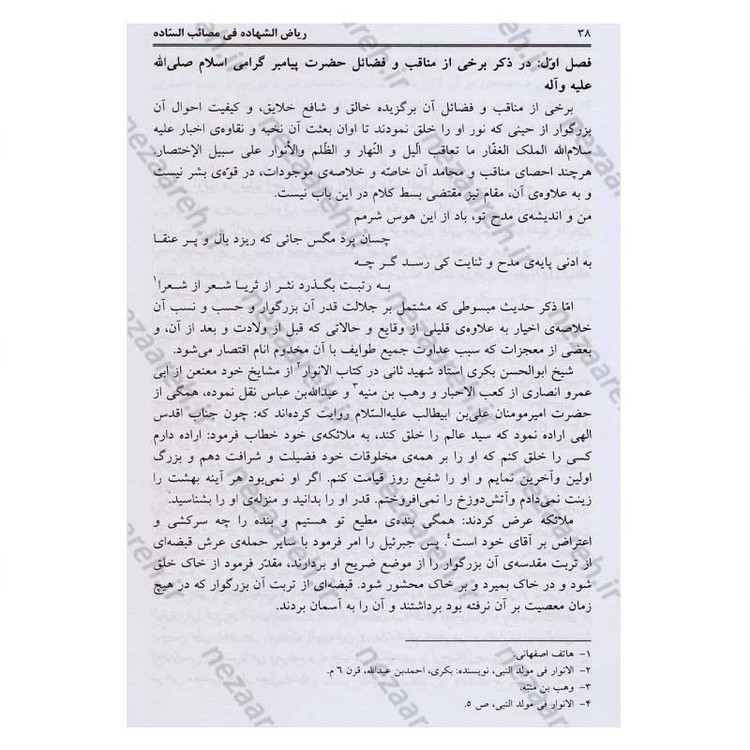 ۳۸
ریاض الشهاده فی مصائب السّاده
فصل اوّل: در ذکر برخی از مناقب و فضائل حضرت پیامبر گرامی اسلام صلی‌الله
علیه وآله
برخی از مناقب و فضائل آن برگزیده خالق و شافع خلایق، و کیفیت احوال آن
بزرگوار از حینی که نور او را خلق نمودند تا اوان بعثت آن نخبه و نقاوه‌ی اخیار علیه
سلام‌الله الملک الغفّار ما تعاقب الّیل و النّهار و الظّلم والأنوار علی سبیل الإختصار.
هرچند احصای مناقب و محامد آن خاصّه و خلاصه‌ی موجودات، در قوّه‌ی بشر نیست
و به علاوه‌ی آن، مقام نیز مقتضی بسط کلام در این باب نیست.
من و اندیشه‌ی مدح تو، باد از این هوس شرمم
چسان پرد مگس جائی که ریزد بال و پر عنقا
به ادنی پایه‌ی مدح و ثنایت کی رسد گر چه
به رتبت بگذرد نثر از ثریا شعر از شعرا۱
امّا ذکر حدیث مبسوطی که مشتمل بر جلالت قدر آن بزرگوار و حسب و نسب آن
خلاصه‌ی اخیار به علاوه‌ی قلیلی از وقایع و حالاتی که قبل از ولادت و بعد از آن، و
بعضی از معجزات که سبب عداوت جمیع طوایف با آن مخدوم انام اقتصار می‌شود.
شیخ ابوالحسن بکری استاد شهید ثانی در کتاب الانوار۲ از مشایخ خود معنعن از ابی
عمرو انصاری از کعب الاحبار و وهب بن منبه۳ و عبدالله‌بن عباس نقل نموده، همگی از
حضرت امیرمومنان علی‌بن ابیطالب علیه‌السّلام روایت کرده‌اند که: چون جناب اقدس
الهی اراده نمود که سید عالم را خلق کند، به ملائکه‌ی خود خطاب فرمود: اراده دارم
کسی را خلق کنم که او را بر همه‌ی مخلوقات خود فضیلت و شرافت دهم و بزرگ
اولین وآخرین نمایم و او را شفیع روز قیامت کنم. اگر او نمی‌بود هر آینه بهشت را
زینت نمی‌دادم وآتش‌دوزخ را نمی‌افروختم. قدر او را بدانید و منزله‌ی او را بشناسید.
ملائکه عرض کردند: همگی بنده‌ی مطیع تو هستیم و بنده را چه سرکشی و
اعتراض بر آقای خود است۴. پس جبرئیل را امر فرمود با سایر حمله‌ی عرش قبضه‌ای
از تربت مقدسه‌ی آن بزرگوار را از موضع ضریح او بردارند، مقدّر فرمود از خاک خلق
شود و در خاک بمیرد و بر خاک محشور شود. قبضه‌ای از تربت آن بزرگوار که در هیچ
زمان معصیت بر آن نرفته بود برداشتند و آن را به آسمان بردند.
۱- هاتف اصفهانی.
۲- الانوار فی مولد النبی، نویسنده: بکری، احمدبن عبدالله، قرن ٦ م.
۳- وهب بن منبّه.
۴- الانوار فی مولد النبی، ص ۵.
nezaareh.ir